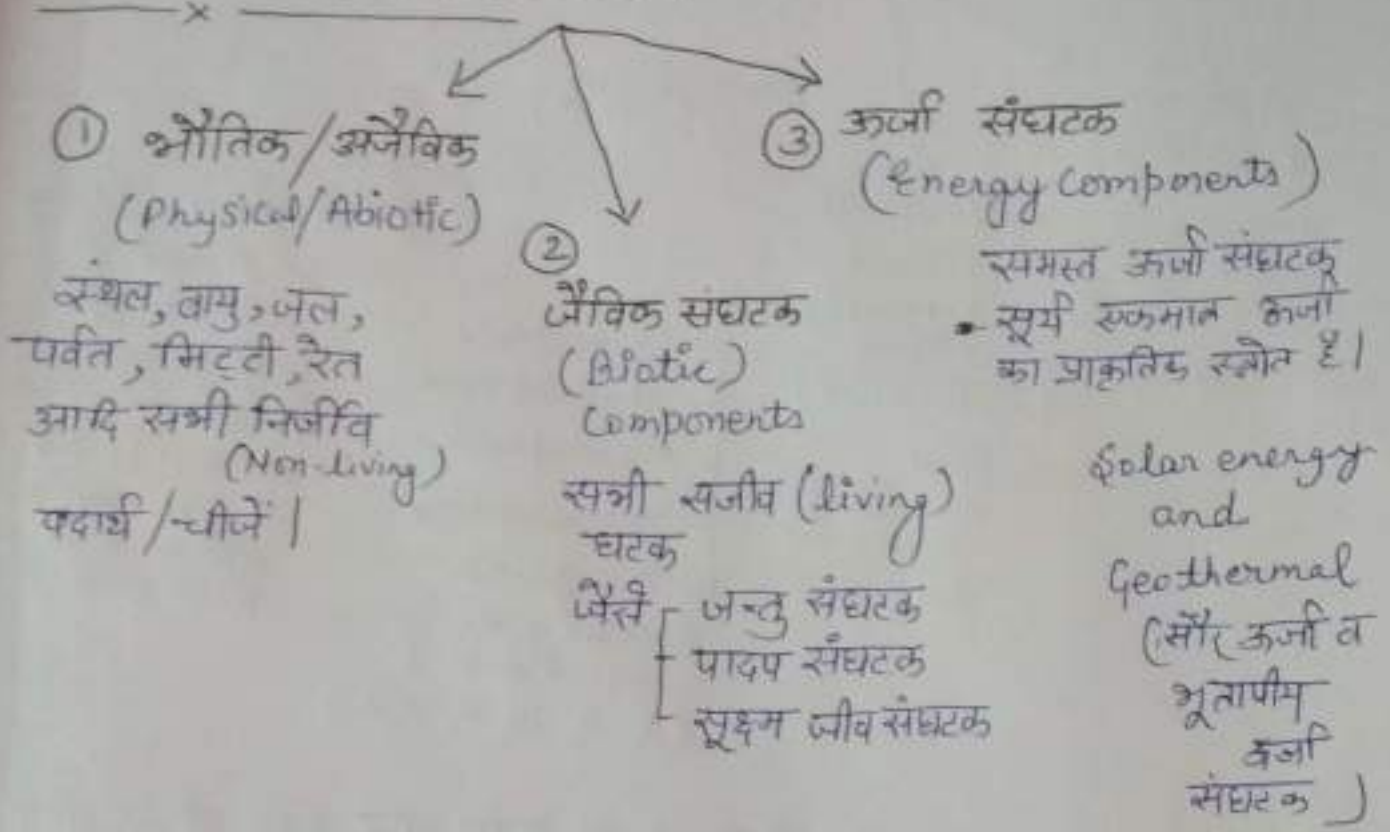 ① भौतिक/अजैविक
(Physical/Abiotic)
स्थल, वायु, जल,
पर्वत, मिट्टी, रेत
आदि सभी निर्जीव
(Non-living)
पदार्थ/चीजें |
②
जैविक संघटक
(Biotic)
Components
सभी सजीव (living)
घटक
जैसे जन्तु संघटक
पादप संघटक
सूक्ष्म जीव संघटक
③ ऊर्जा संघटक
(Energy Components)
समस्त ऊर्जा संघटक
सूर्य एकमात्र ऊर्जा
का प्राकृतिक स्त्रोत है।
Solar energy
and
Geothermal
(सौर ऊर्जा व
भूतापीय
ऊर्जा
संघटक)